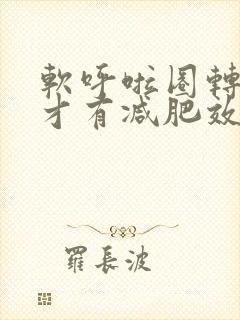 軟呼啦圈轉
才有減肥效
羅長波